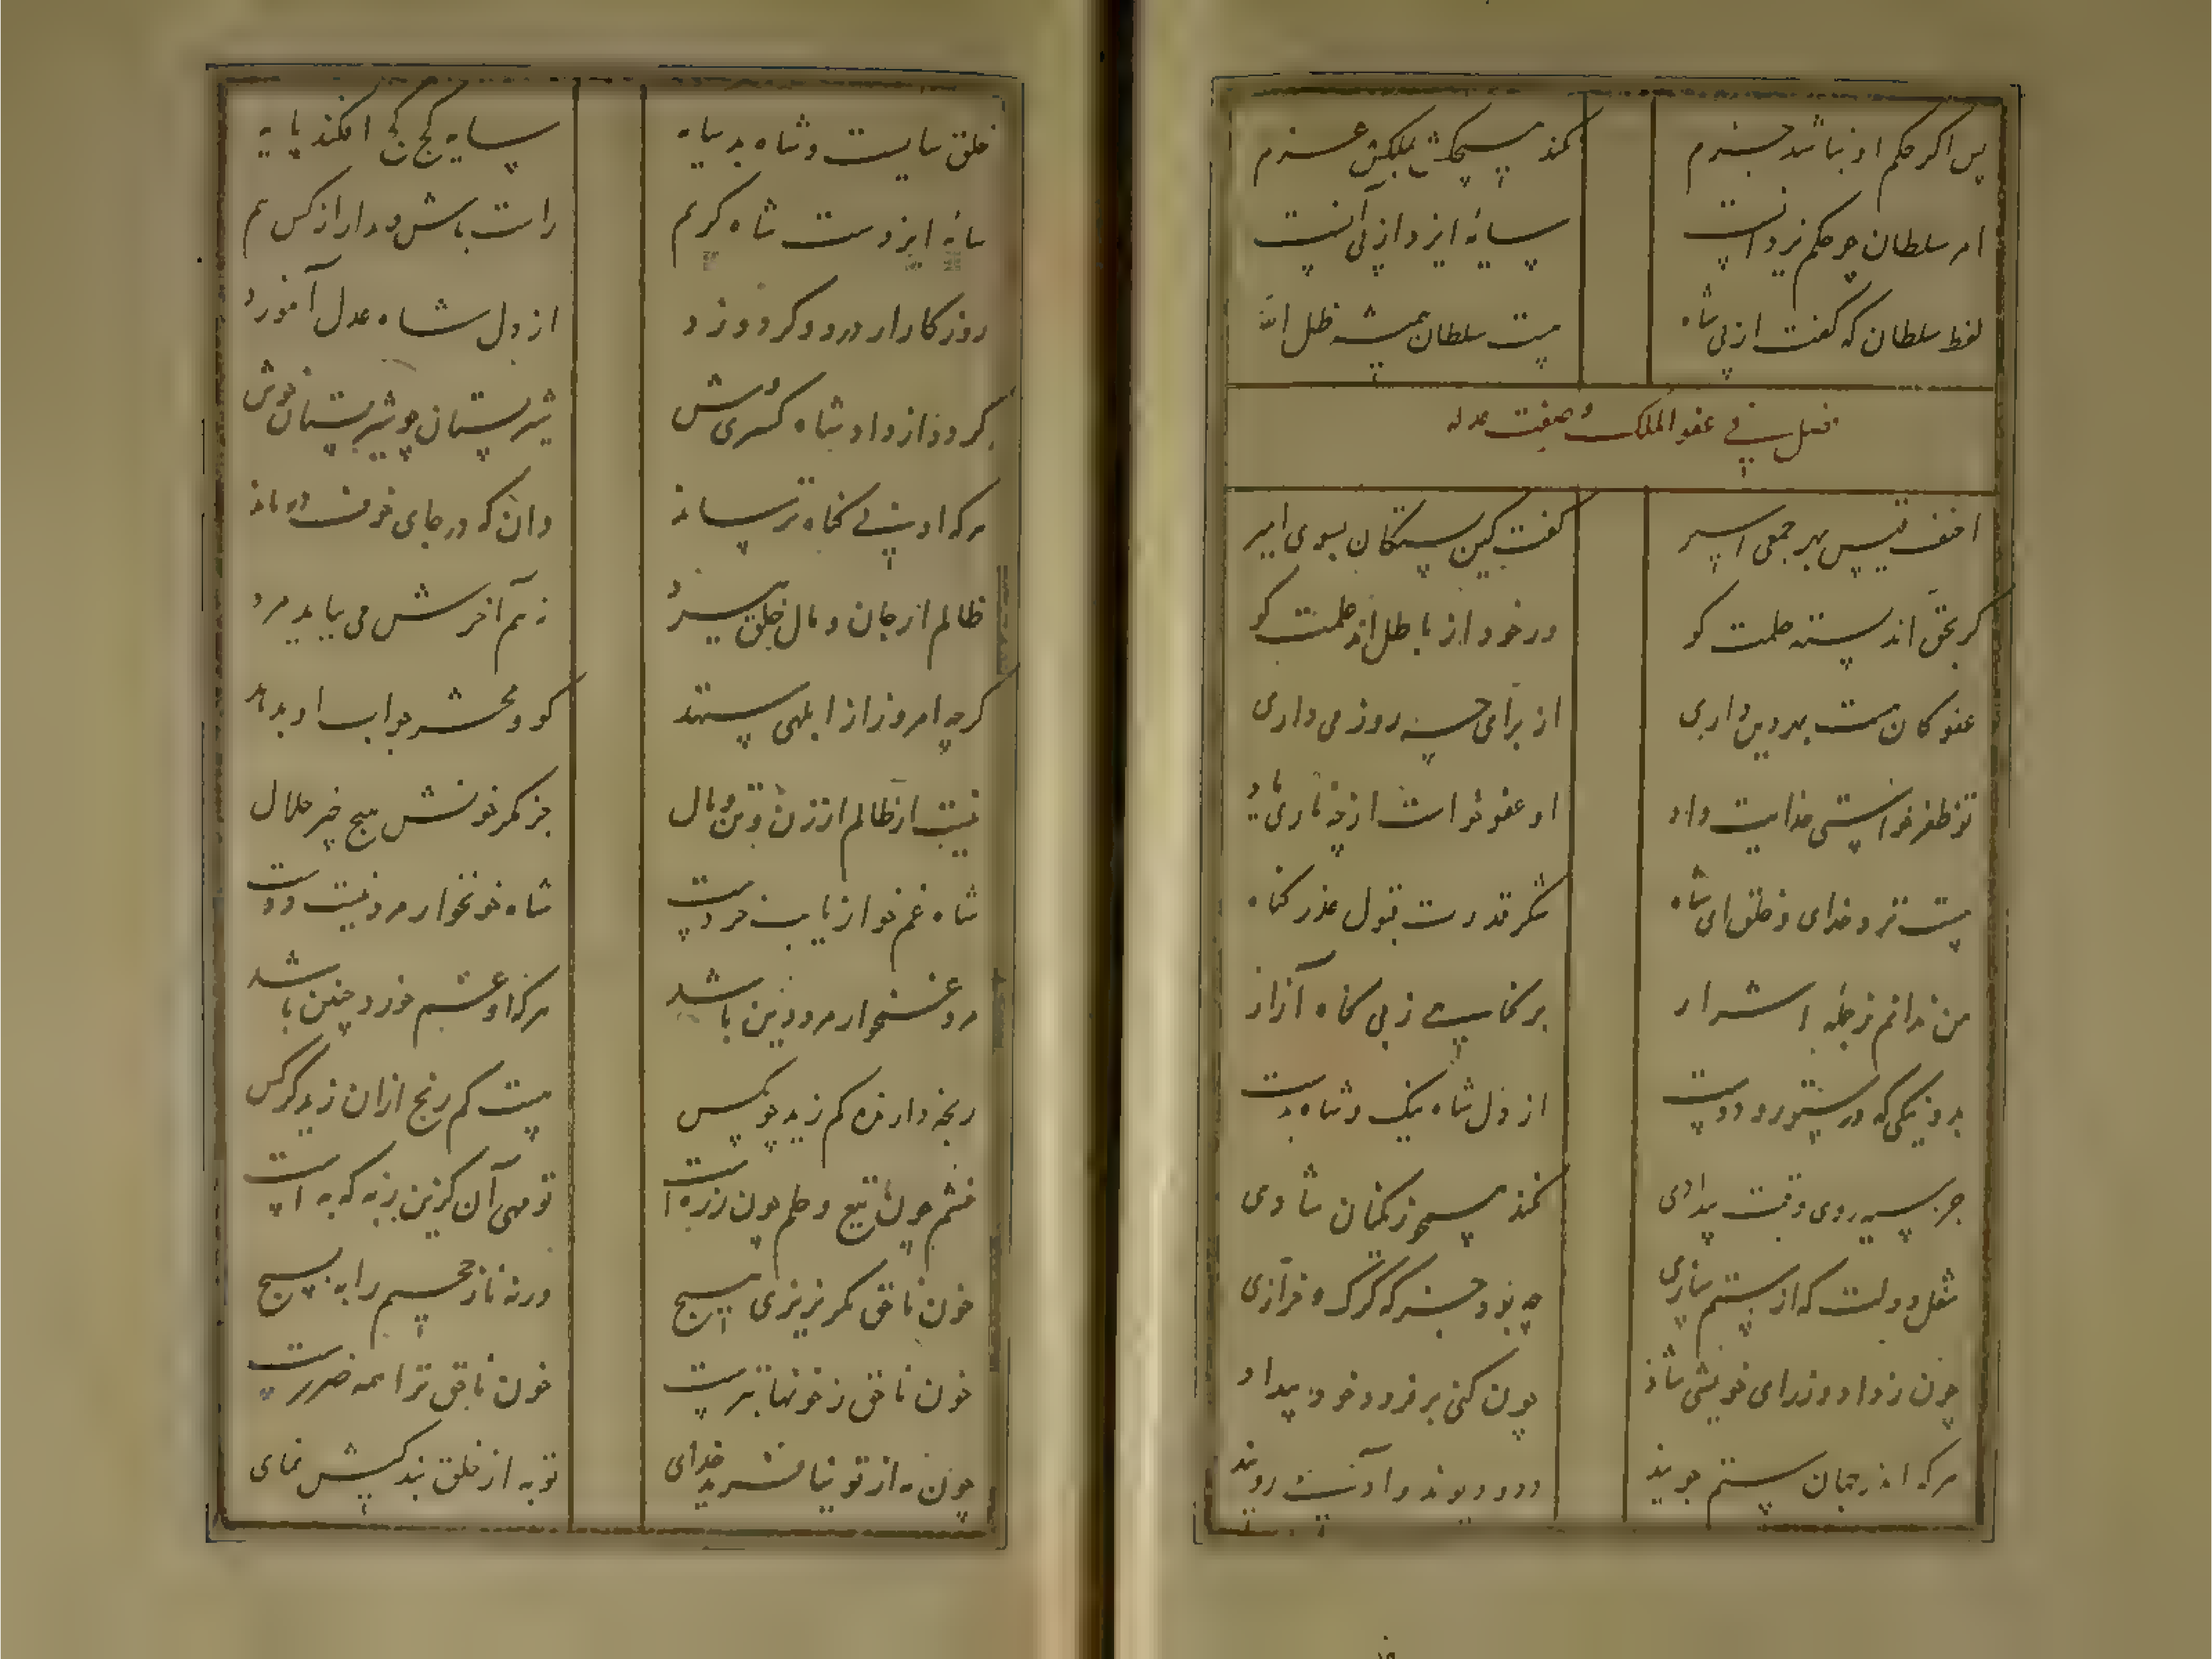 پس اکر حکم او نباشد جزم
نکند هیچکس بملکش عزم
امر سلطان چو حکم یزدانست
سایهٔ ایزد از پی آنست
لفظ سلطان که کفت از پی شاه
هست سلطان همیشه ظل الله
فصل فی عفو الملک و صفت عدله
احنف قیس بهر جمعی اسیر
کفت کین بستکان بسوی امیر
کر بحق اند بسته حلمت کو
ور خود از باطل اند حلمت کو
عفو کان هست بهر دین داری
از برای چه روز می داری
تو ظفر خواستی خدایت داد
او عفو خواست از چه ناری یاد
هست نزد خدای و خلق ای شاه
شکر قدرت قبول عذر کناه
من ندانم ز جمله اشرار
بر کناهی ز بی کناه آزار
بد و نیکی که در ستور و ددست
از دل شاه نیک و شاه بدست
جز سیه روی وقت بیدادی
نکند هیچ زنکیان شادی
شغل دولت که از ستم سازی
چه بود جز که کرک و خرازی
چون ز داد و ز رای خویشی شاد
چون کنی بر فرود خود بیداد
هرکه اندر جهان ستم جویند
دد و دیوند و آدمی رویند
خلق سایست و شاه بد پایه
پایه کج کج افکند سایه
سایه ایزدست شاه کریم
راست باش و مدار از کس بیم
روزکار ار درود کر دوزد
از دل شاه عدل آموزد
کردد از داد شاه کسری وش
شیر پستان چو شیر پستان خوش
هرکه او بی کناه ترساند
دان که در جای خوف درماند
ظالم از جان و مال خلق سیزد
ز هم آخرش می بباید مرد
کرچه امروز از ابلهی ستند
کو محشر جواب او بدهند
نیست از ظالم از زن و تن و مال
جز مکر خونش هیچ چیز حلال
شاه غم خوار نایب خردست
شاه خونخوار مرد نیست ددست
مرد غمخوار مرد دین باشد
هرکه او غم خورد چنین باشد
رنجه دار مزه کم زید چو مکس
هست کم رنج از آن زید کرکس
خشم چون تیغ و حلم چون زره است
تو مهی آن کزین بزنه که به است
خون ناحق مکر نریزی هیچ
ورنه ناز جحیم را بسیج
خون ناحق ز خونها بترست
خون ناحق ترا همه ضررست
چون نه از تو نیافرید خدای
تو به از خلق بند کیش نمای